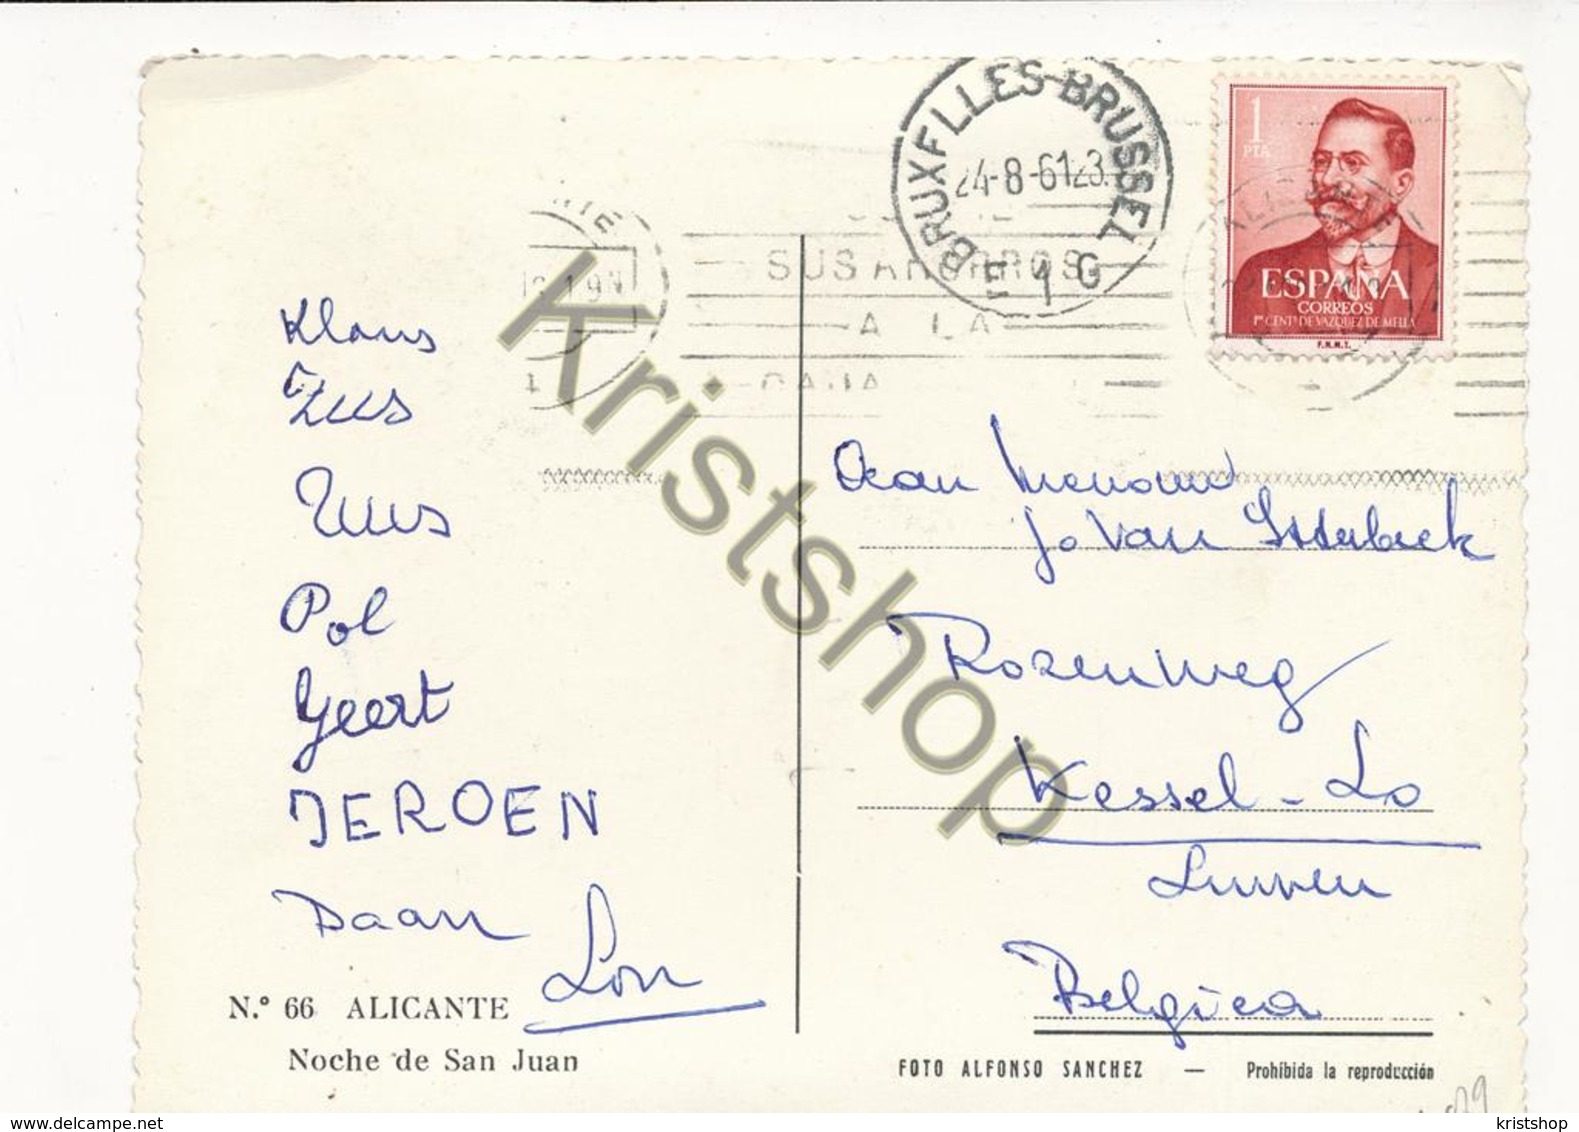 BRUXELLES-BRUSSEL
24-8-61 23
E 1 G
1
PTA
ESPAÑA
CORREOS
1er CENTº DE VAZQUEZ DE MELLA
F.N.M.T.
SUS AHORROS
A LA
CAJA
Klaus
Zus
Pol
Geert
JEROEN
Daan
Lon
Jo Van
Rozenweg
Kessel-Lo
Leuven
Belgica
N.º 66 ALICANTE
Noche de San Juan
FOTO ALFONSO SANCHEZ — Prohibida la reproducción
Kristshop
delcampe.net
kristshop